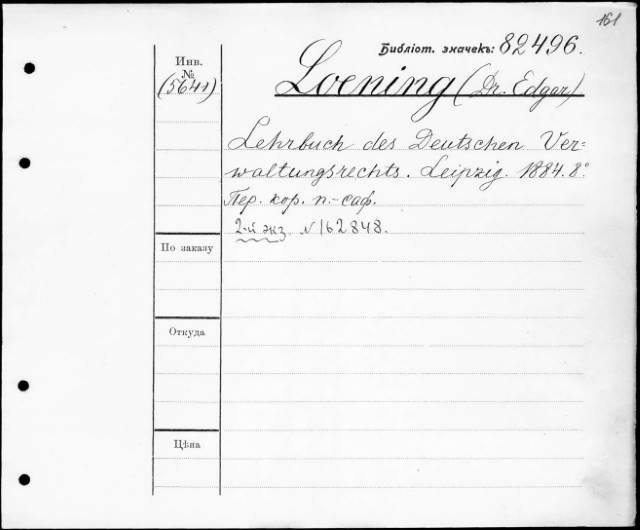 161
Библіот. значекъ: 82496.
Инв.
№
(5641)
Loening (Dr. Edgar)
Lehrbuch des Deutschen Ver=
waltungsrechts. Leipzig. 1884. 8°.
Пер. кор. п.-саф.
2-й экз. N 162848.
По заказу
Откуда
Цѣна